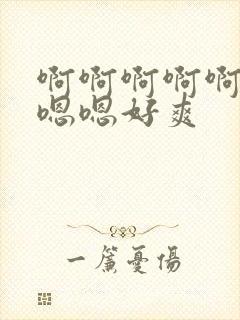 啊啊啊啊啊
嗯嗯好爽
一簾憂傷